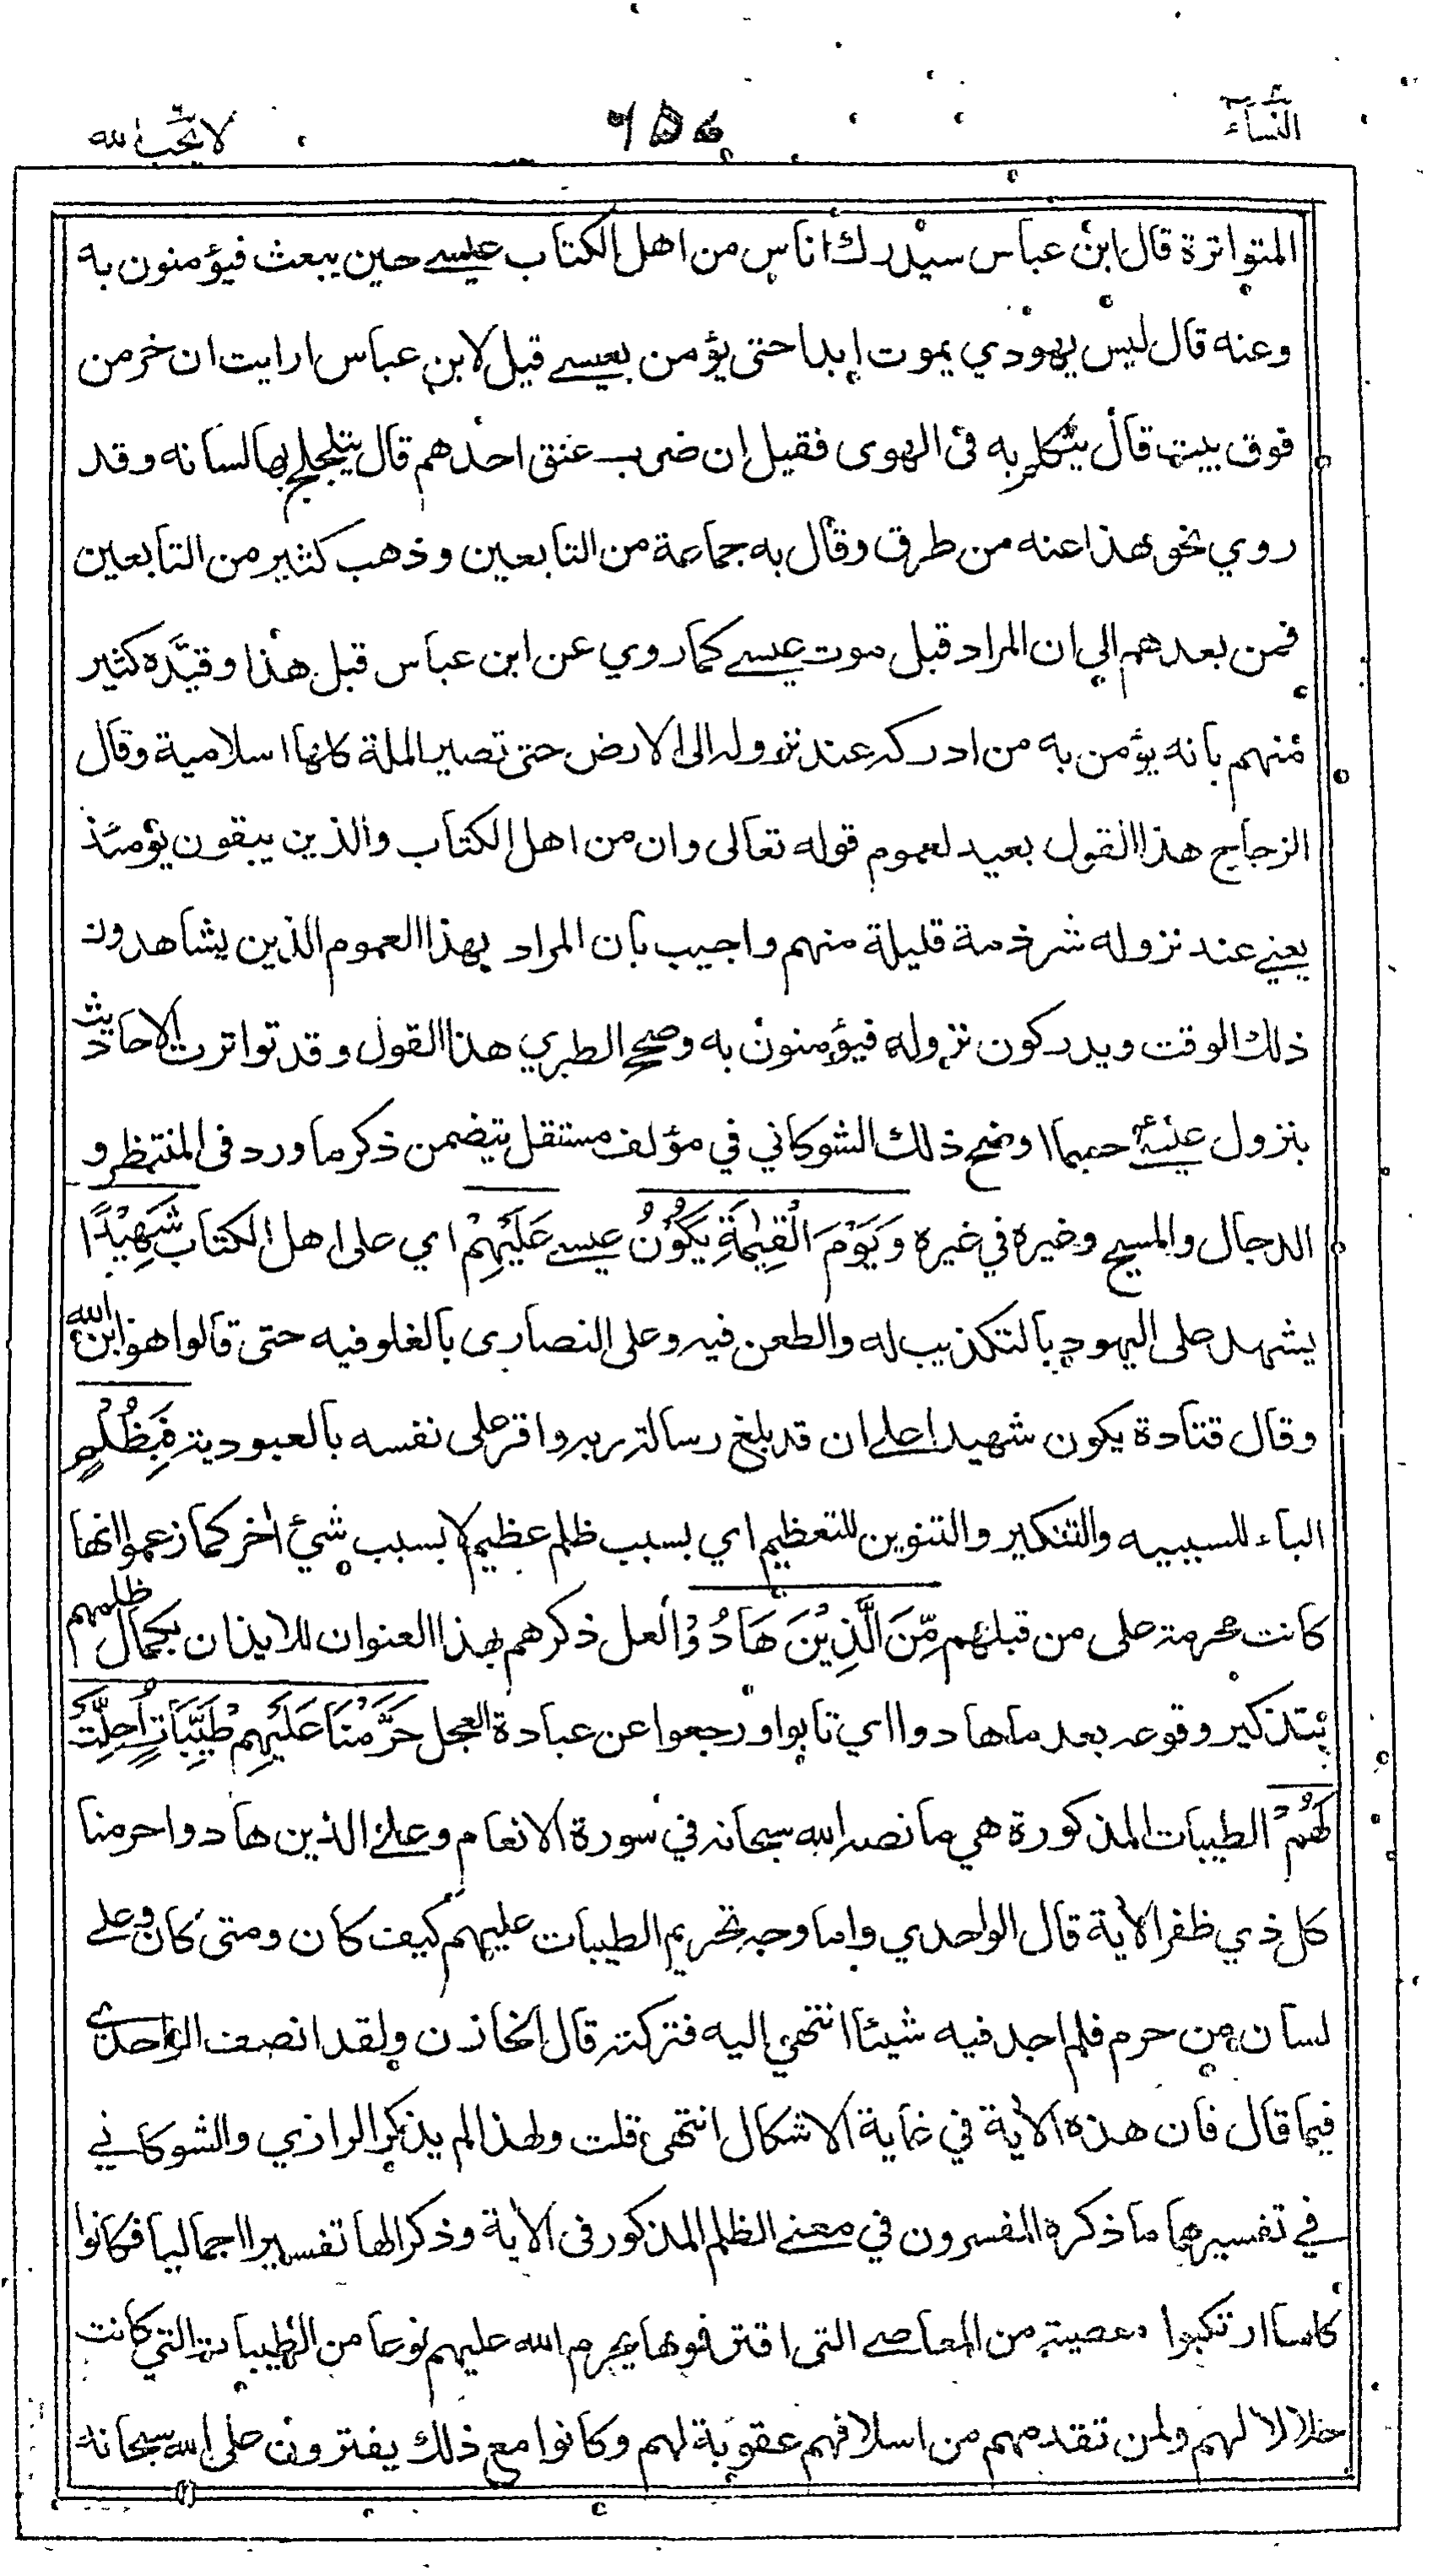 النساء
لا يحب الله
المتواترة قال ابن عباس سيدرك اناس من اهل الكتاب عيسى حين يبعث فيؤمنون به
وعنه قال ليس يهودي يموت ابدا حتى يؤمن بعيسى قيل لابن عباس ارايت ان خر من
فوق بيت قال يتكلم به فى الهوى فقيل ان ضرب عنق احدهم قال يتلجلج بها لسانه وقد
روي نحو هذا عنه من طرق وقال به جماعة من التابعين وذهب كثير من التابعين
فمن بعدهم الى ان المراد قبل موت عيسى كما روي عن ابن عباس قبل هذا وقيده كثير
منهم بانه يؤمن به من ادركه عند نزوله الى الارض حتى تصير الملة كلها اسلامية وقال
الزجاج هذا القول بعيد لعموم قوله تعالى وان من اهل الكتاب والذين يبقون يومئذ
يعنى عند نزوله شرذمة قليلة منهم واجيب بان المراد بهذا العموم الذين يشاهدون
ذلك الوقت ويدركون نزوله فيؤمنون به وصحح الطبري هذا القول وقد تواترت الاحاديث
بنزول عيسى جسما اوضح ذلك الشوكاني في مؤلف مستقل يتضمن ذكر ما ورد فى المنتظر و
الدجال والمسيح وغيره في غيره وَيَوْمَ الْقِيٰمَةِ يَكُوْنُ عيسى عَلَيْهِمْ اي على اهل الكتاب شَهِيْدًا
يشهد على اليهود بالتكذيب له والطعن فيه وعلى النصارى بالغلو فيه حتى قالوا هو ابن الله
وقال قتادة يكون شهيدا على ان قد بلغ رسالة ربه واقر على نفسه بالعبودية فَبِظُلْمٍ
الباء للسببيه والتنكير والتنوين للتعظيم اي بسبب ظلم عظيم لا بسبب شيئ اخر كما زعموا انها
كانت محرمة على من قبلهم مِّنَ الَّذِيْنَ هَادُوْا لعل ذكرهم بهذا العنوان للايذان بكمال ظلمهم
بتذكير وقوعه بعد ما هادوا اي تابوا ورجعوا عن عبادة العجل حَرَّمْنَا عَلَيْهِمْ طَيِّبَاتٍ اُحِلَّتْ
لَهُمْ الطيبات المذكورة هي ما نصه الله سبحانه في سورة الانعام وعلى الذين هادوا حرمنا
كل ذي ظفر الآية قال الواحدي واما وجه تحريم الطيبات عليهم كيف كان ومتى كان وعلى
لسان من حرم فلم اجد فيه شيئا انتهى اليه فتركته قال الخازن ولقد انصف الواحدى
فيما قال فان هذه الآية في غاية الاشكال انتهى قلت ولهذا لم يذكر الرازي والشوكاني
في تفسيرهما ما ذكره المفسرون في معنى الظلم المذكور فى الآية وذكرا لها تفسيرا اجماليا فكانوا
كلما ارتكبوا معصية من المعاصى التى اقترفوها يحرم الله عليهم نوعا من الطيبات التي كانت
حلالا لهم ولمن تقدمهم من اسلافهم عقوبة لهم وكانوا مع ذلك يفترون على الله سبحانه